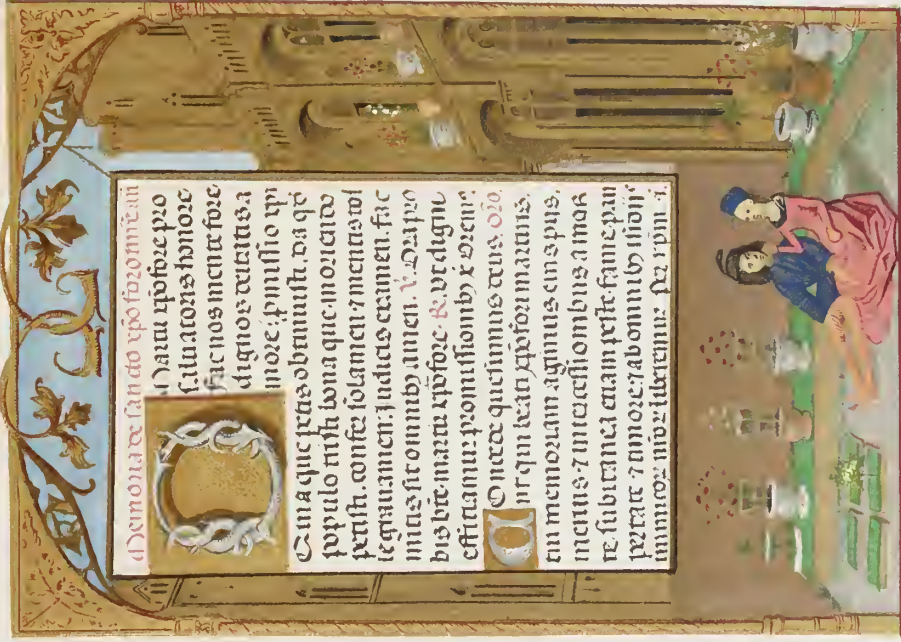 Memoria de sancto xp̄o foro mr̄. an̄
O Martir xp̄ofore pro
saluatoris honore
fac nos mente fore
dignos deitatis a
more: p̄missio xp̄i
Quia que petis obtinuisti da
populo tristi bona que moriendo
petisti. confer solamen: ⁊ mentis tol
le grauamen: Judicis examen. fac
mitis sit omnibꝰ amen. V. Ora pro
bis bt̄e martir xp̄ofore. R. vt digni
efficiamur promissionibꝰ
Concede quesumus deus. oro
ut qui beati xp̄ofori martiris.
memoriam agimus eius piis.
meritis ⁊ intercessionibus a mor
te subitanea etiam peste. fame. pau
pertate ⁊ timore: ⁊ ab omnibꝰ insidijs
liberemur Per xp̄m.